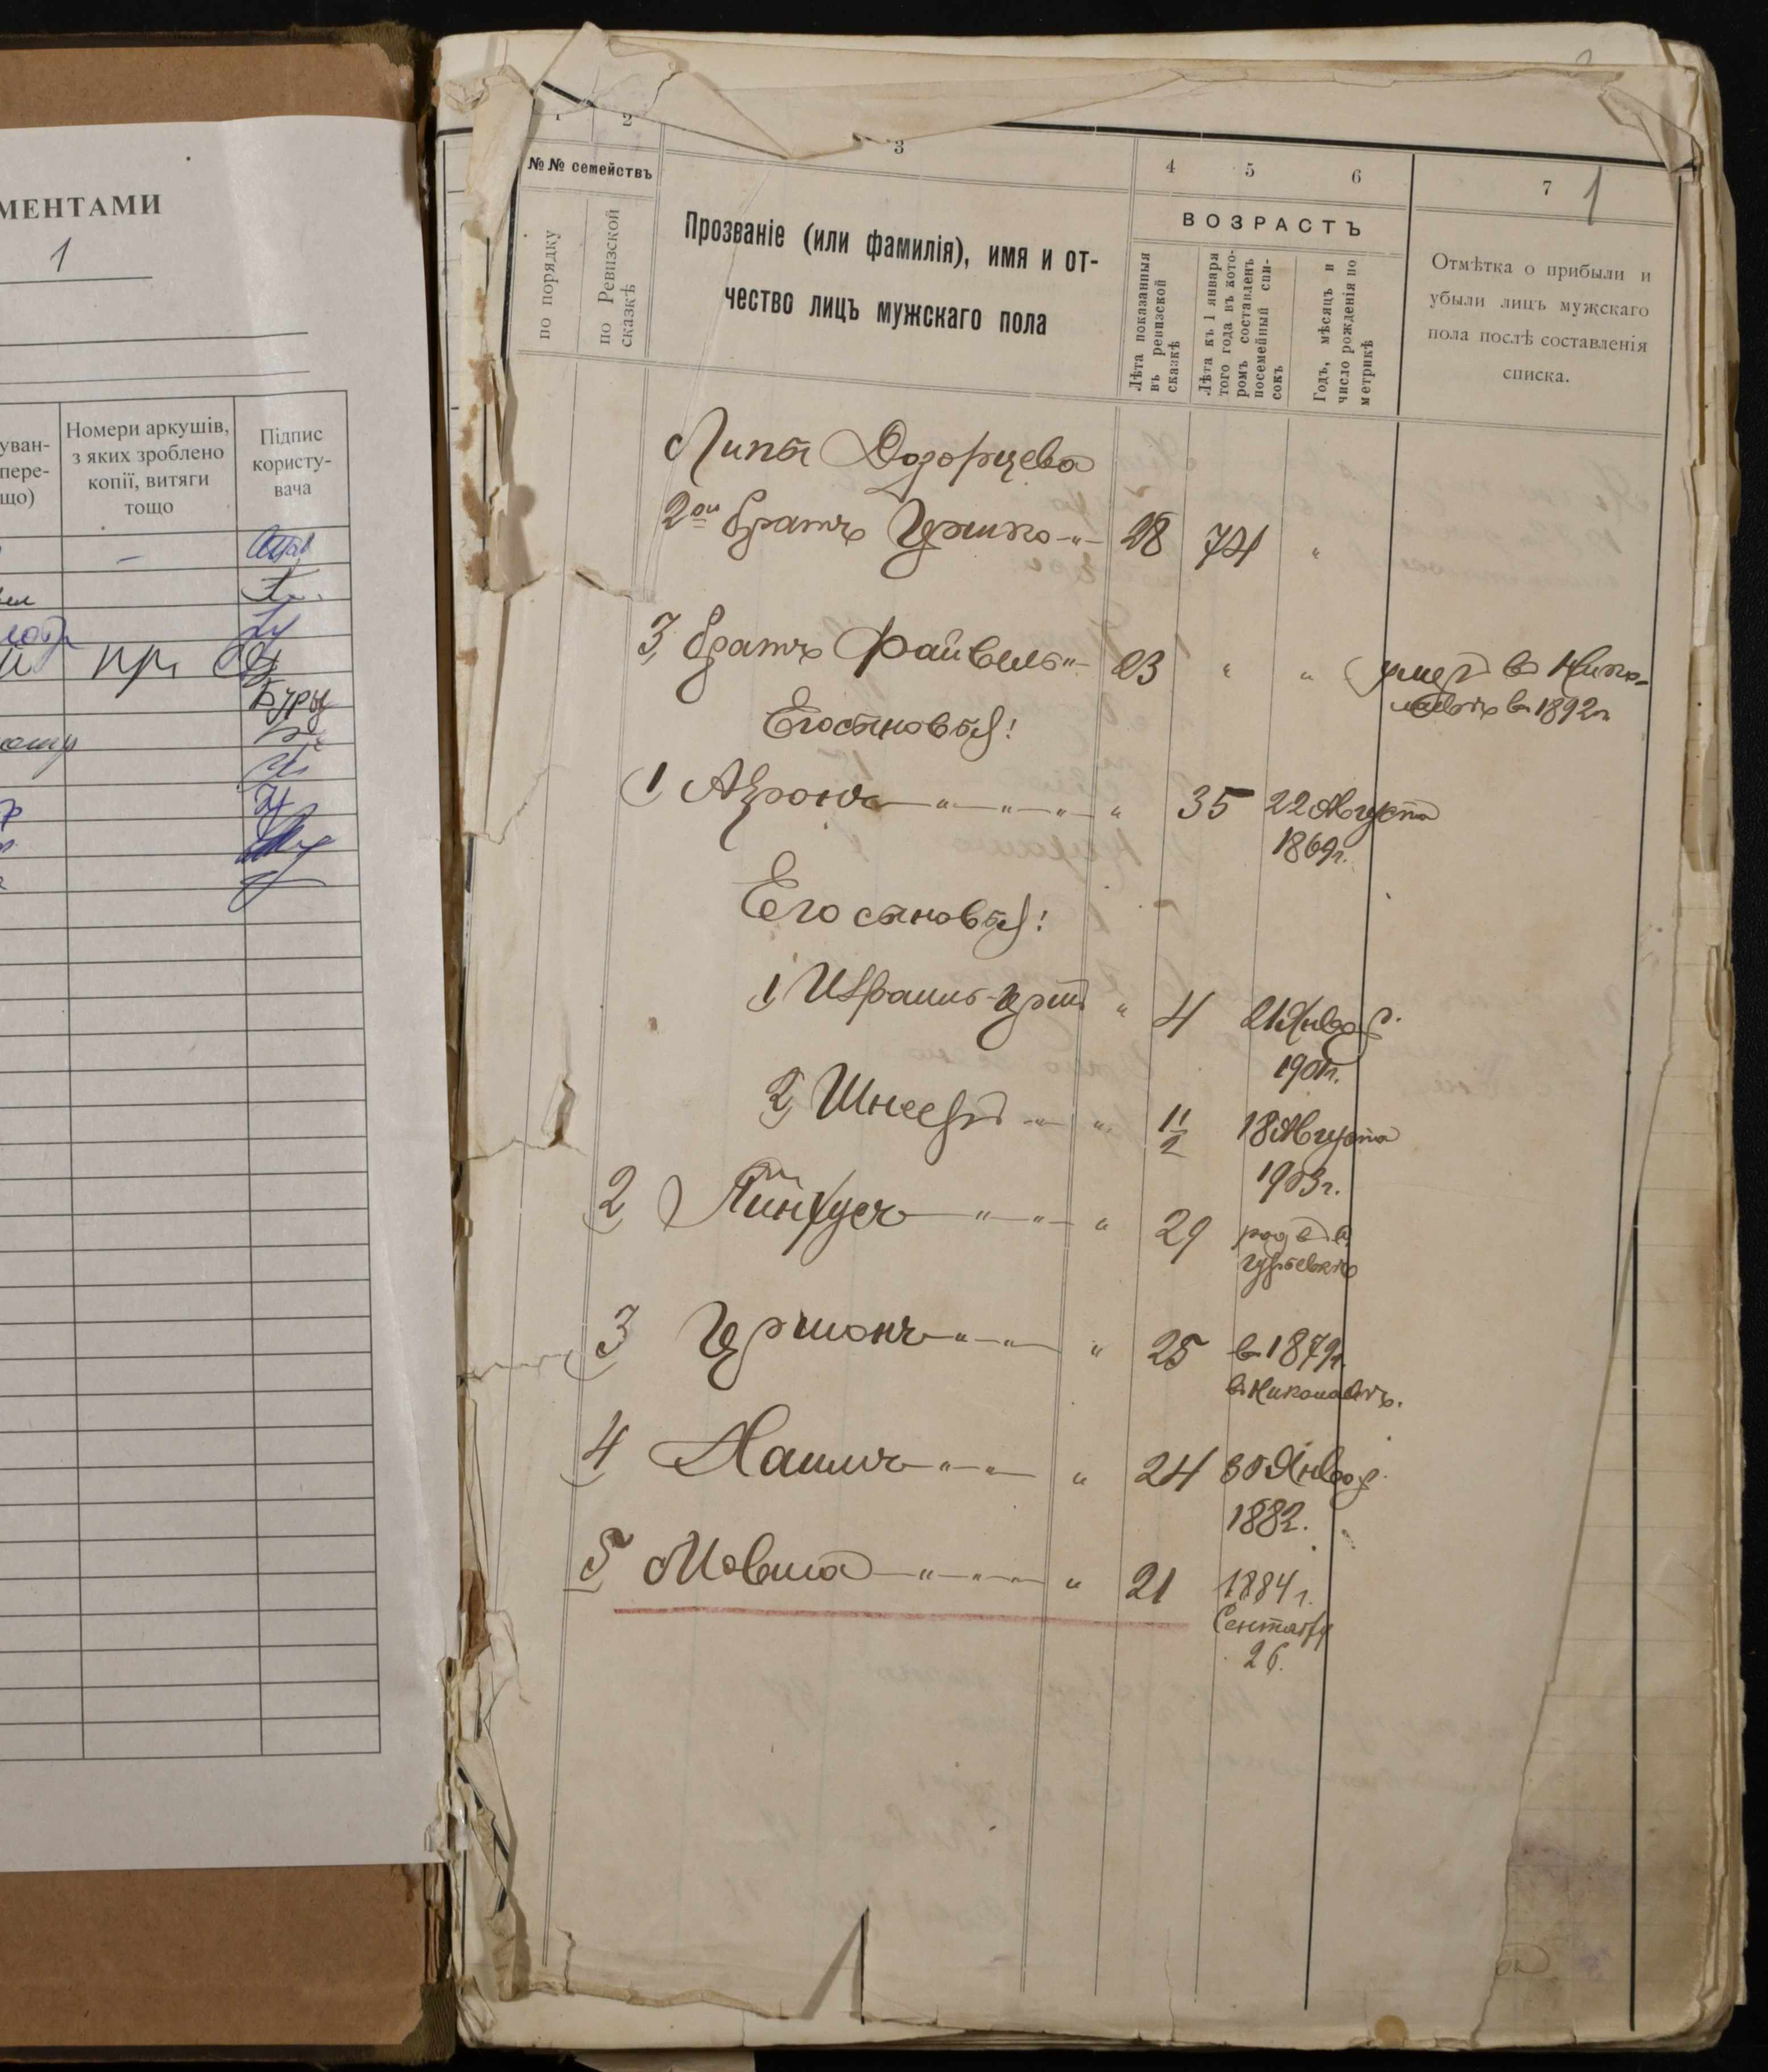 МЕНТАМИ
1
уван-
пере-
що)
Номери аркушів,
з яких зроблено
копії, витяги
тощо
Підпис
користу-
вача
1 2 3 4 5 6 7 1
№№ семействъ
по порядку
по Ревизской
сказкѣ
Прозваніе (или фамилія), имя и от-
чество лицъ мужскаго пола
ВОЗРАСТЪ
Лѣта показанныя
въ ревизской
сказкѣ
Лѣта къ 1 января
того года въ кото-
ромъ составленъ
посемейный спи-
сокъ
Годъ, мѣсяцъ и
число рожденія по
метрикѣ
Отмѣтка о прибыли и
убыли лицъ мужскаго
пола послѣ составленія
списка.
Липы Дозорцева
2ой братъ Гершко -„- 28 74 „
3 братъ Файвель -„- 23 „ „ умер в Нико-
лаевѣ в 1892г
Его сыновья:
1 Аронъ -„-„-„- „ 35 22 Августа
1869г.
Его сыновья:
1 Израиль-Герш „ 4 21 Январ.
1901г.
2 Шнеер -„- „ 1 1/2 18 Августа
1903г.
2 Пинхусъ -„-„- „ 29 род в
3 Гершонъ -„-„- „ 25 в 1879г.
в Николаевѣ.
4 Хаимъ -„-„- „ 24 30 Январ.
1882.
5 Мовша -„-„-„- „ 21 1884г.
Сентября
26.